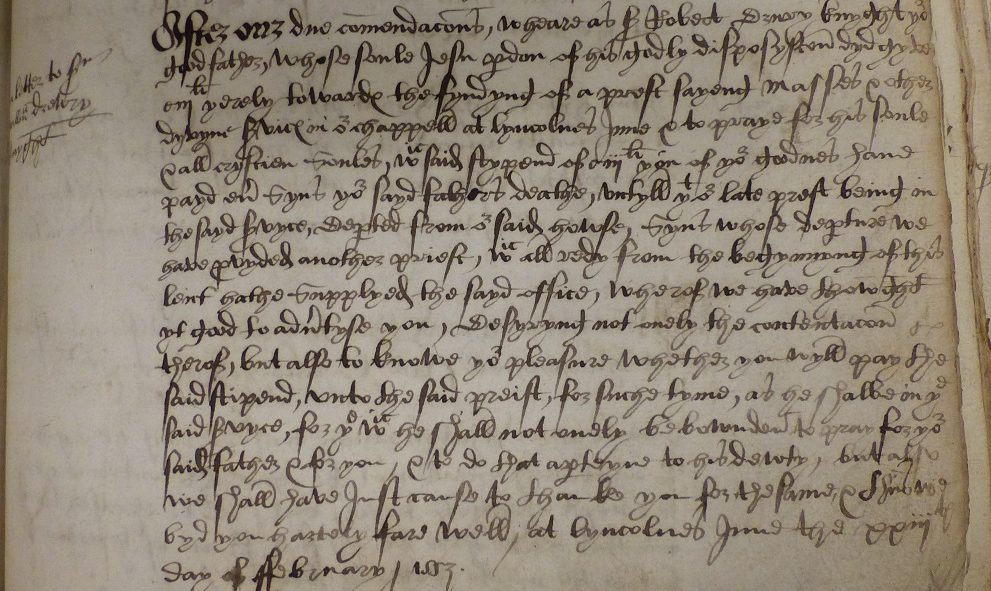 letter to Sr
drewry
knyght
After orr due comendacons, wheare as Sr Robert Drury knyght yor
good father, whose soule Jesu pdon of his godly disposysion dyd gyve
iiijli yerely towarde the fyndyng of a prest sayeng Masses & other
dyvyne svice in or chappell at lyncolnes Inne & to praye for his soule
& all crystien Soules, wch said stypend of iiijli you of yor goodnes have
payd evr Syns yor sayd fathers deathe, untyll yt or late prest being in
the sayd svyce, depted from or said howse, Syns whose depture we
have pvyded another priest, wch all redy from the begynnyng of this
lent hathe Supplyed the sayd office, wherof we have thowght
yt good to advrtyse you, Desyryng not onely the contentacon
therof, but also to knowe yor pleasure whether you wyll pay the
said stipend, unto the said preist, for suche tyme, as he shalbe in ye
said svyce, for ye wch he shall not onely be bownden to pray for yor
said father & for you, & to do that apteyne to his dewty, but also
we shall have Just cause to thanke you for the same, & thus we
byd you hartely fare well, at lyncolnes Inne the xxiijth
day of ffebruary, 1553.